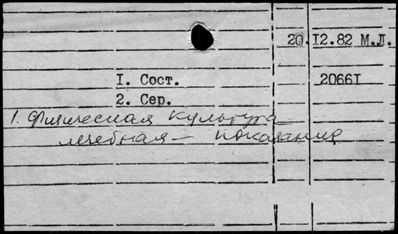 20.12.82 М.Л.
I. Сост. 2066I
2. Сер.
1. Физическая культура
лечебная — показания